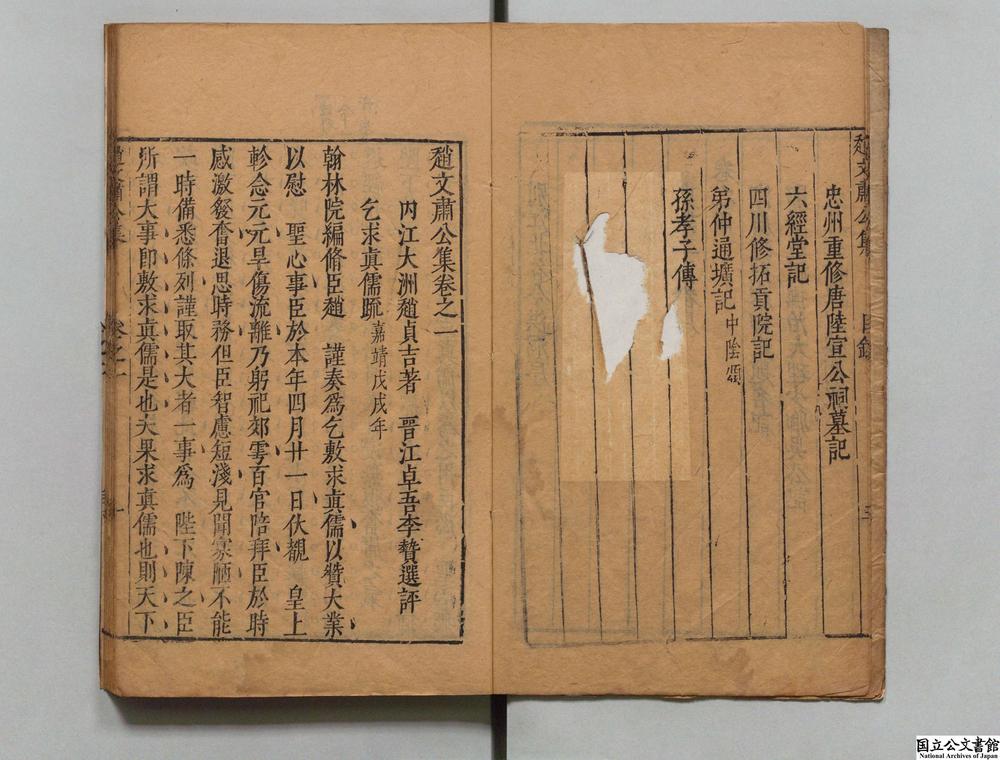 趙文肅公集 目錄 三
忠州重修唐陸宣公祠墓記
六經堂記
四川修拓貢院記
弟仲通壙記中陰頌
孫孝子傳
趙文肅公集卷之一
內江大洲趙貞吉著 晋江卓吾李贄選評
乞求真儒䟽嘉靖戊戌年
翰林院編脩臣趙 謹奏爲乞敷求真儒以贊大業
以慰 聖心事臣於本年四月廿一日伏覩 皇上
軫念元元旱傷流離乃躬祀郊雩百官陪拜臣於時
感激發奮退思時務但臣智慮短淺見聞寡陋不能
一時備悉條列謹取其大者一事爲 陛下陳之臣
所謂大事即敷求真儒是也夫果求真儒也則天下
國立公文書館
National Archives of Japan